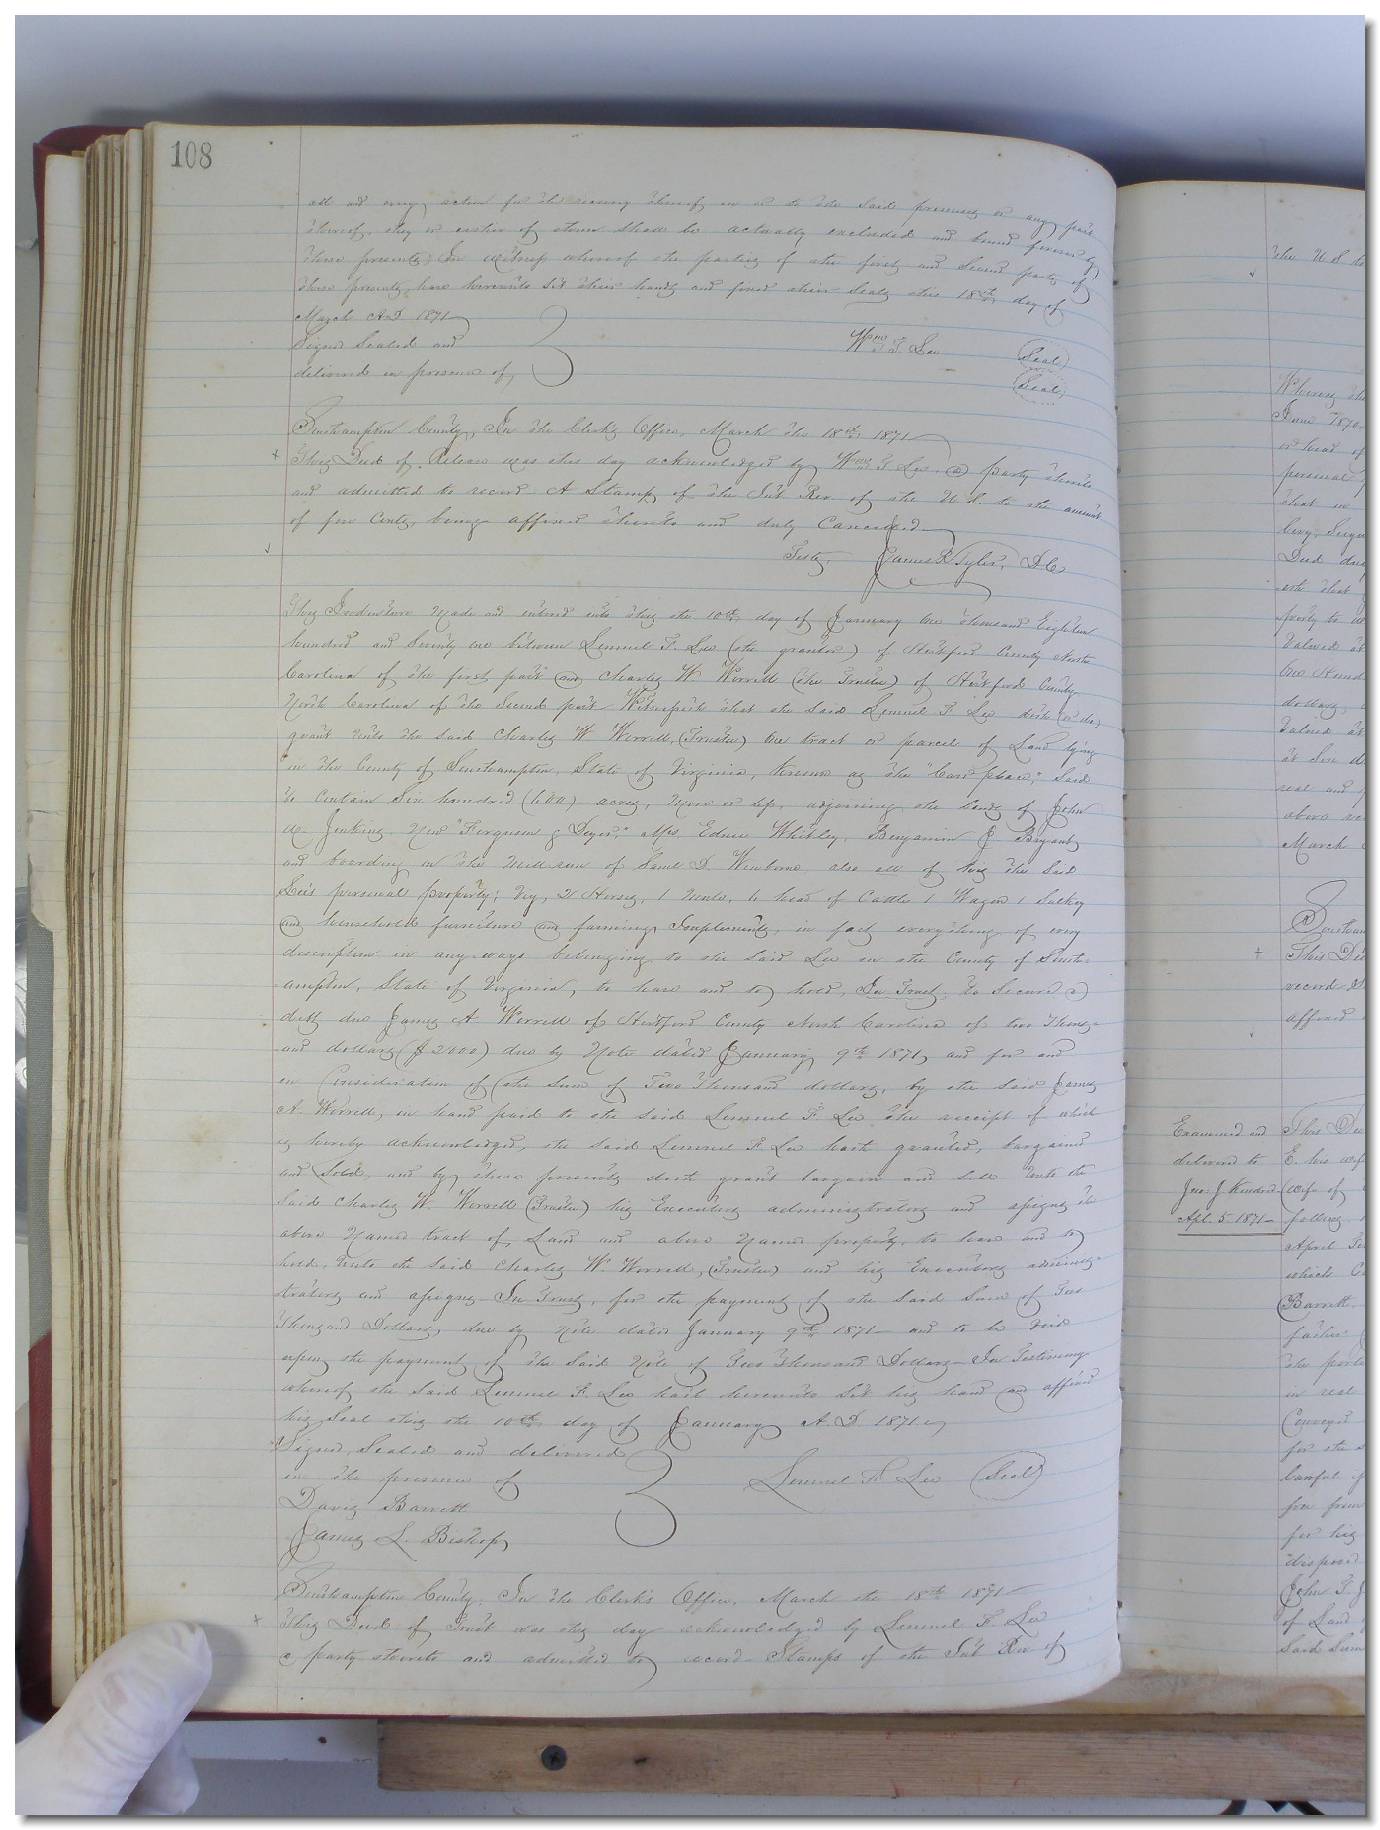 108
all and every action for the recovery thereof in or to the Said premises or any part
thereof, they or either of them Shall be actually excluded and bound forever by
these presents. In witness whereof the parties of the first and Second parts of
these presents, have hereunto Set their hands and fixed their Seals this 18th day of
March A.D 1871
Signed Sealed and
delivered in presence of,
Wm T. Lee (Seal)
(Seal)
Southampton County, In the Clerks Office, March the 18th 1871
This Deed of Release was this day acknowledged by Wm T. Lee a party thereto
and admitted to record A Stamp of the Int Rev. of the U.S. to the amount
of five Cents, being affixed thereto and duly Cancelled
Teste, James R Tyler, D.C
This Indenture Made and entered into this the 10th day of January One thousand Eighteen
hundred and Seventy one between Lemuel F. Lee (the grantor) of Hertford County North
Carolina of the first part and Charles W Worrell (the Trustee) of Hertford County
North Carolina of the Second part Witnesseth that the Said Lemuel F. Lee doth (or do)
grant Unto the Said Charles W Worrell, (Trustee) One tract or parcel of Land lying
in the County of Southampton, State of Virginia, known as the "Carr place," Said
to Contain Six hundred (600) acres, More or less, adjoining the lands of John
Jenkins, Now "Ferguson & Dozer," Mrs. Ednee Whitley, Benjamin J Bryant
and boarding on the Mill run of Saml D. Winborne also all of his the Said
Lee's personal property; Viz, 2 Horses, 1 Mule, 6 head of Cattle 1 Wagon 1 Sulkey
and household furniture and farming Implements, in fact everything of every
description in any ways belonging to the Said Lee in the County of South-
ampton, State of Virginia, to have and to hold, In Trust, to Secure a
debt due James A Worrell of Hertford County North Carolina of two Thous-
and dollars ($2000) due by Note dated January 9th 1871, and for and
in Consideration of the Sum of Two Thousand dollars, by the Said James
A. Worrell, in hand paid to the Said Lemuel F. Lee the receipt of which
is hereby acknowledged, the Said Lemuel F. Lee hath granted, bargained
and Sold, and by these presents doth grant bargain and Sell Unto the
Said Charles W. Worrell (Trustee) his Executors administrators and assigns the
above Named tract of Land and above Named property, to have and to
hold, Unto the Said Charles W. Worrell, (Trustee) and his Executors adminis-
trators and assigns In Trust, for the payment of the Said Sum of Two
Thousand Dollars, due by Note dated January 9th 1871 and to be Void
upon the payment of the Said Note of Two Thousand Dollars In Testimony
whereof the Said Lemuel F. Lee hath hereunto Set his hand and affixed
his Seal this the 10th day of January A.D 1871
Signed, Sealed and delivered
in the presence of
Lemuel F. Lee (Seal)
Davis Barrett
James L. Bishop
Southampton County, In the Clerk's Office, March the 18th 1871
This Deed of Trust was this day acknowledged by Lemuel F. Lee
a party thereto and admitted to record Stamps of the Int Rev of
the U S
Whereas
June 1870
or head of
personal
that in
Deed
party to
Valued at
One Hund
dollars
Valued at
real and
above
March
Southam
This De
record
affixed
Examined and
delivered to
Jno: J Kindred
Apl. 5. 1871
This De
E. his wif
(wife of
following
April
which
Barrett
father
the
in real
Conveyed
for the
lawful
for his
disposed
John
of Land
Said Sum